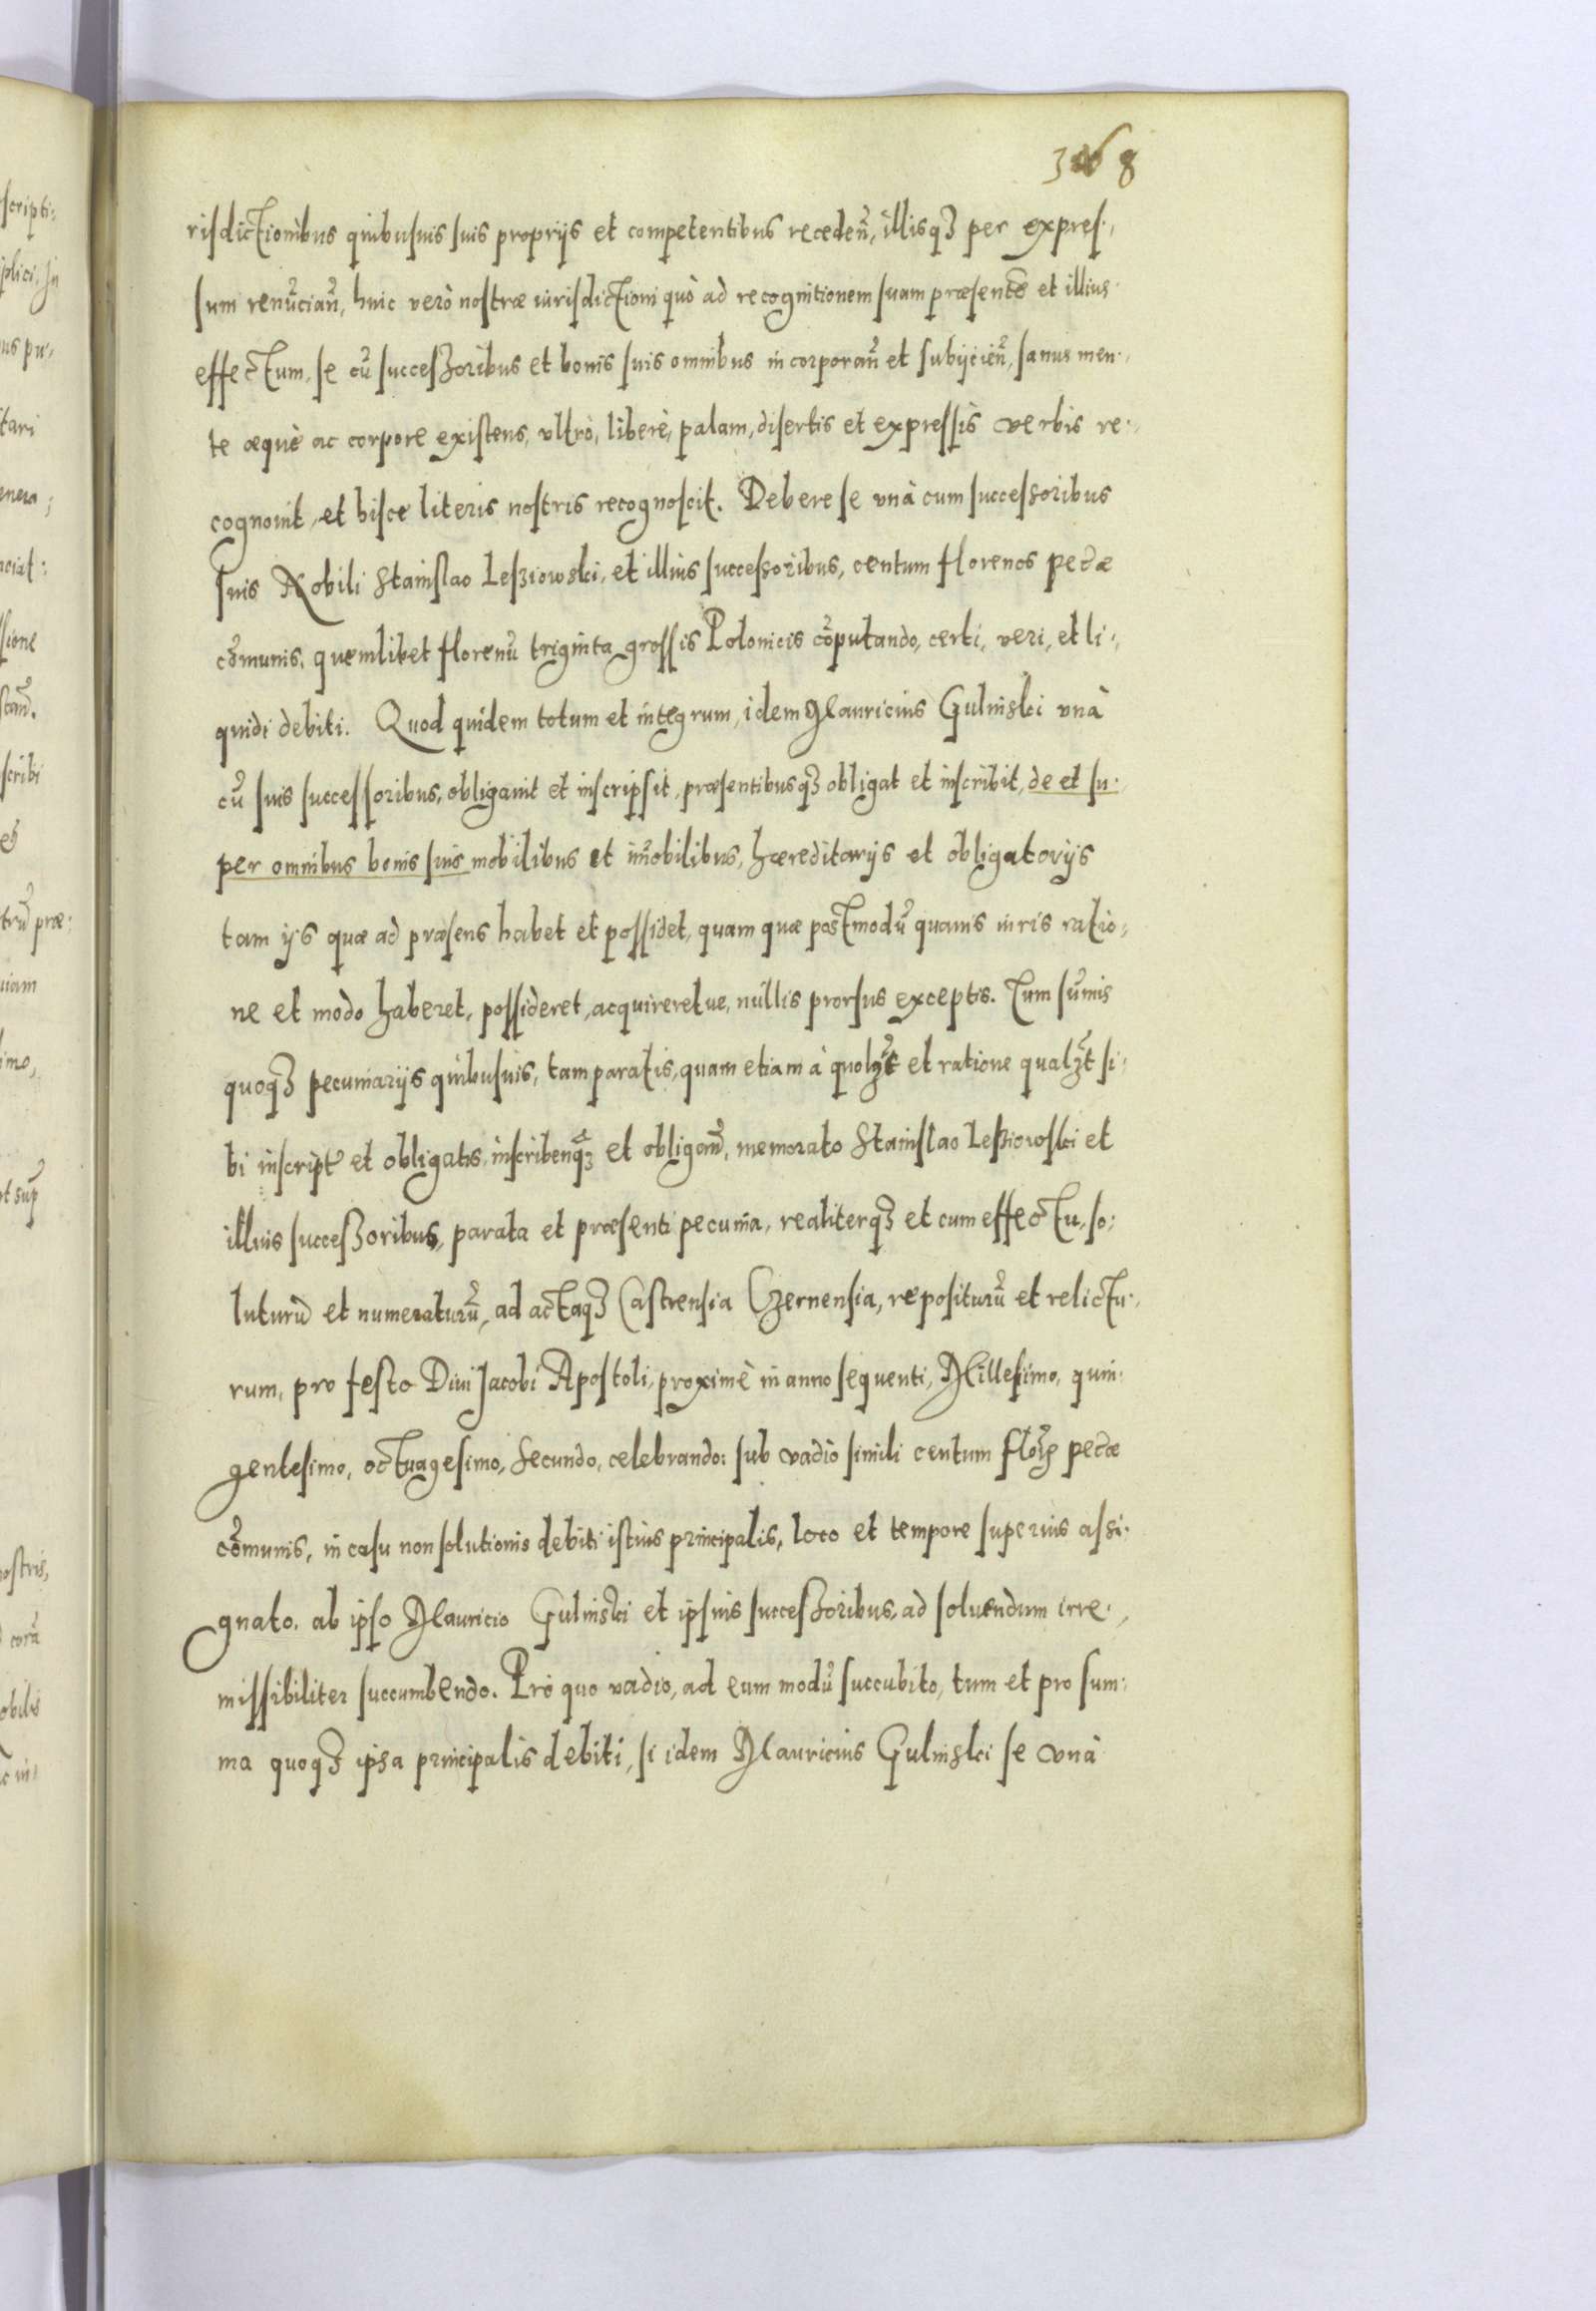 368
risdictionibus quibusuis suis proprijs et competentibus receden̄, illisq3 per expres,
sum renūcian̄, huic verò nostræ iurisdictioni quò ad recognitionem suam præsentē et illius
effectum, se cū successoribus et bonis suis omnibus incorporan̄ et subijcien̄, sanus men,
te æquè ac corpore existens, vltrò, liberè, palam, disertis et expressis verbis re,
cognouit, et hisce literis nostris recognoscit. Debere se vnà cum successoribus
suis Nobili Stanislao Leßiowski, et illius successoribus, centum florenos pecæ
cōmunis, quemlibet florenū triginta grossis Polonicis cōputando, certi, veri, et li,
quidi debiti. Quod quidem totum et integrum, idem Mauricius Gulinski vnà
cū suis successoribus, obligauit et inscripsit, præsentibusq3 obligat et inscribit, de et su,
per omnibus bonis suis mobilibus et im̄obilibus, hæreditarijs et obligatorijs
tam ijs quæ ad præsens habet et possidet, quam quæ postmodū quauis iuris ratio,
ne et modo haberet, possideret, acquireretue, nullis prorsus exceptis. Tum sūmis
quoq3 pecuniarijs quibusuis, tam paratis, quam etiam à quolz̄t et ratione qualz̄t si,
bi inscript et obligatis, inscribenq3 et obligan̄, memorato Stanislao Leßiowski et
illius successoribus, parata et præsenti pecunia, realiterq3 et cum effectu, so,
luturū et numeraturū, ad actaq3 Castrensia Czernensia, repositurū et relictu,
rum, pro festo Diui Jacobi Apostoli, proximè in anno sequenti, Millesimo, quin,
gentesimo, octuagesimo, Secundo, celebrando: sub vadio simili centum flor̄ pecæ
cōmunis, in casu non solutionis debiti istius principalis, loco et tempore superius assi,
gnato. ab ipso Mauricio Gulinski et ipsius successoribus, ad soluendum irre,
missibiliter succumbendo. Pro quo vadio, ad eum modū succubito, tum et pro sum,
ma quoq3 ipsa principalis debiti, si idem Mauricius Gulinski se vnà